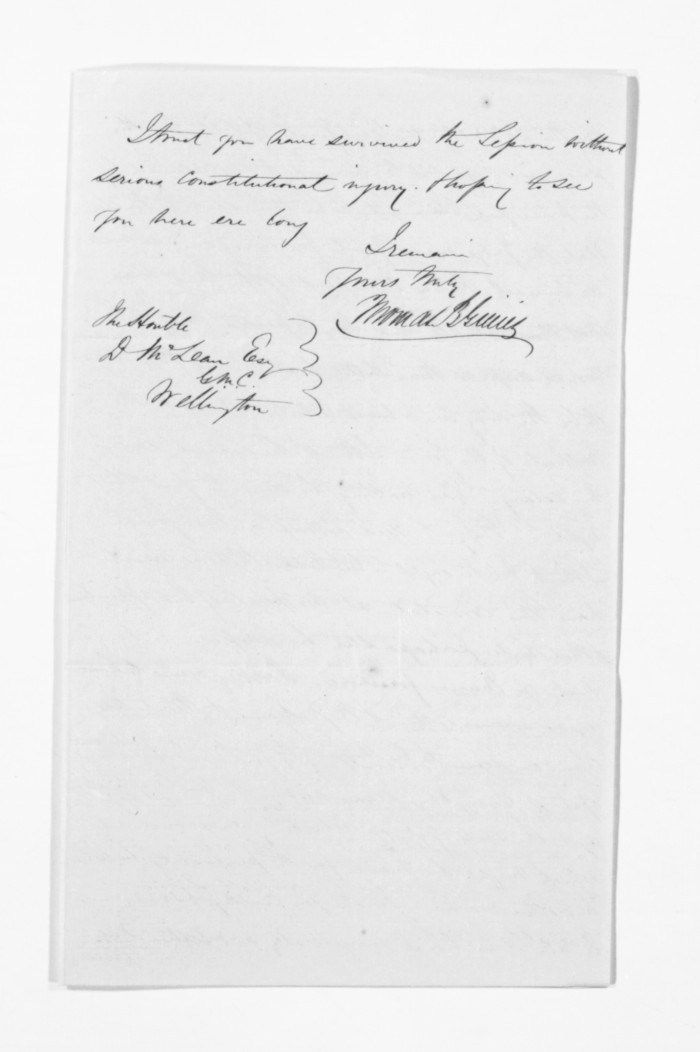 I trust you have survived the Session without
serious constitutional injury. & hoping to see
you here ere long
I remain
Yours truly
Thomas
The Honble
D McLean Esq
G.M.C.
Wellington